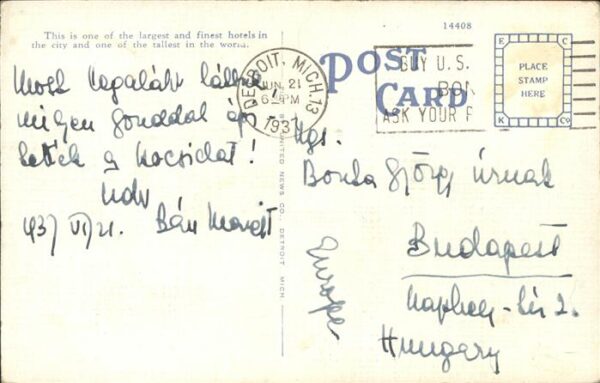 This is one of the largest and finest hotels in
the city and one of the tallest in the world.
14408
POST
CARD
DETROIT, MICH. 13
JUN. 21
6 PM
1937
BUY U.S.
BON
ASK YOUR P
E C
PLACE
STAMP
HERE
K Co
Most legalább
milyen gonddal
a kocsidat!
Üdv
937 VI/21. Bán
UNITED NEWS CO., DETROIT, MICH.
Ngs.
György úrnak
Budapest
2.
Hungary
Europe